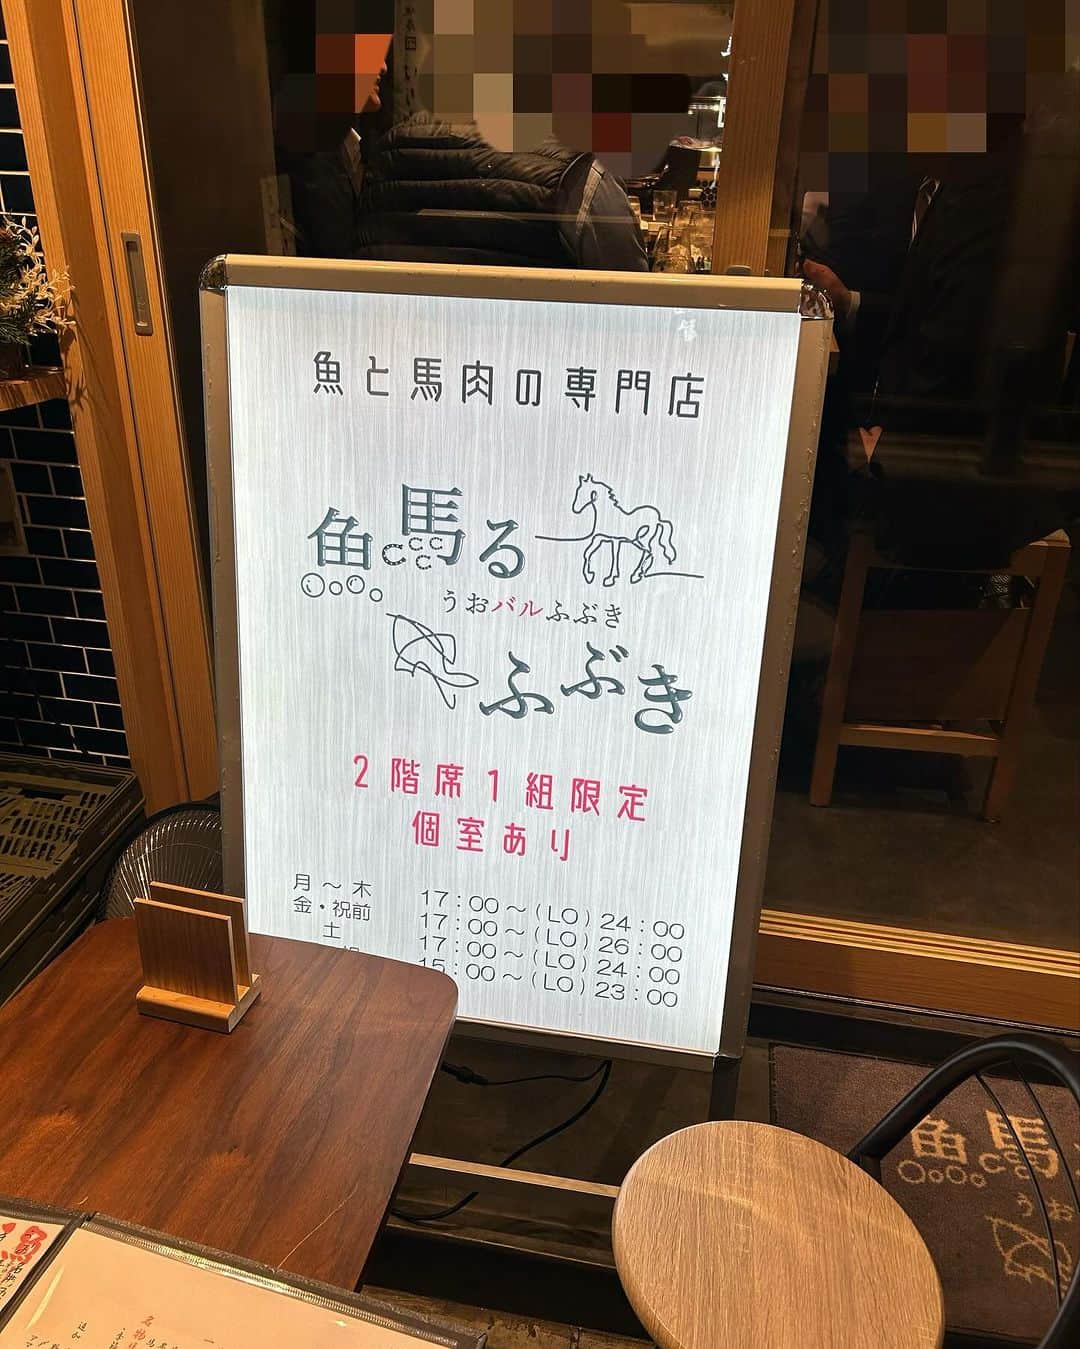 魚と馬肉の専門店
魚馬る
うおバルふぶき
ふぶき
2階席1組限定
個室あり
月～木 17：00～(LO)24：00
金・祝前 17：00～(LO)26：00
土 17：00～(LO)24：00
15：00～(LO)23：00
魚馬
うお
名物